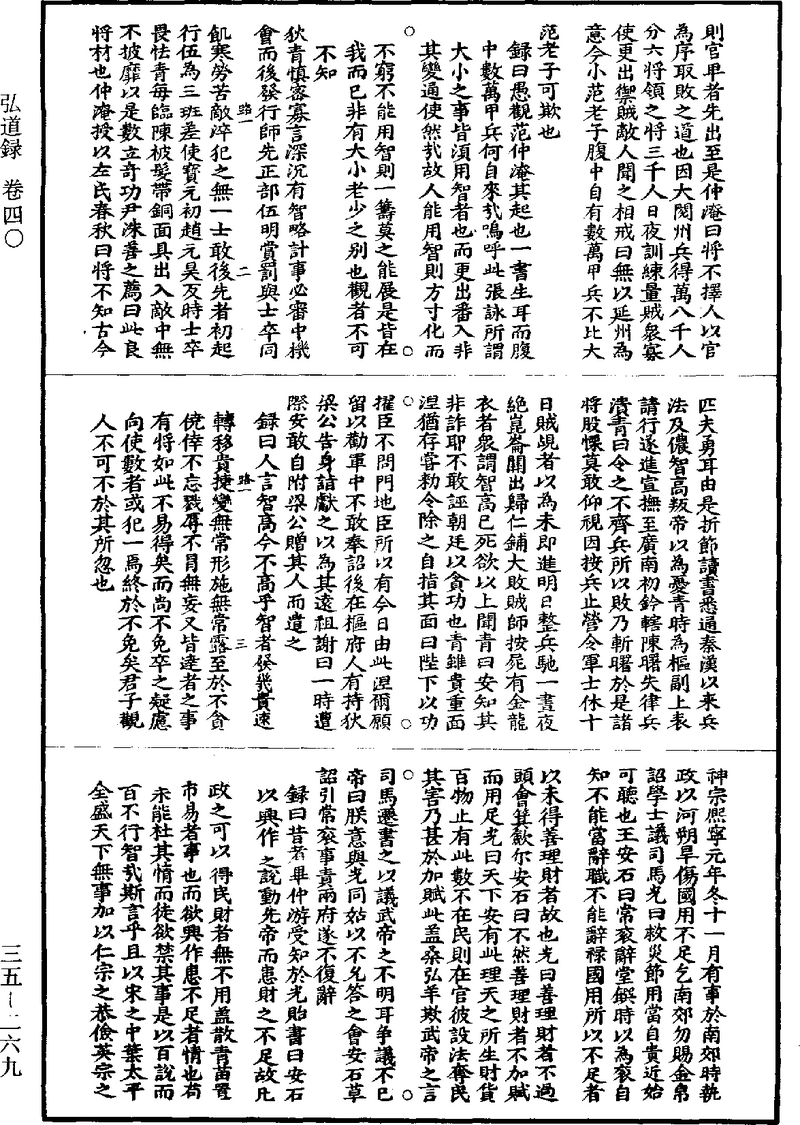 弘道録　卷四〇
三五—二六九
則官卑者先出至是仲淹曰將不擇人以官
為序取敗之道也因大閱州兵得萬八千人
分六將領之將三千人日夜訓練量賊衆寡
使更出禦賊敵人聞之相戒曰無以延州為
意今小范老子腹中自有數萬甲兵不比大
范老子可欺也
錄曰愚觀范仲淹其起也一書生耳而腹
中數萬甲兵何自來㢤嗚呼此張詠所謂
大小之事皆須用智者也而更出番入非
其變通使然㢤故人能用智則方寸化而
○　○
不窮不能用智則一籌莫之能展是皆在
我而已非有大小老少之别也觀者不可
不知
狄青慎密寡言深沉有智略計事必審中機
會而後發行師先正部伍明賞罰與士卒同
路一　二
飢寒勞苦敵淬犯之無一士敢後先者初起
行伍為三班差使寳元初趙元昊反時士卒
畏怯青每臨陳被髮帶銅面具出入敵中無
不披靡以是數立奇功尹洙善之薦曰此良
將材也仲淹授以左氏春秋曰將不知古今
匹夫勇耳由是折節讀書悉通秦漢以來兵
法及儂智高叛帝以為憂青時為樞副上表
請行遂進宣撫至廣南初鈐轄陳曙失律兵
潰青曰令之不齊兵所以敗乃斬曙於是諸
將股慄莫敢仰視因按兵止營令軍士休十
日賊覘者以為未即進明日整兵馳一晝夜
絶崑崙關出歸仁鋪大敗賊師按屍有金龍
衣者衆謂智高已死欲以上聞青曰安知其
非詐耶不敢誣朝廷以貪功也青雖貴重面
涅猶存嘗勑令除之自指其面曰陛下以功
○　○
擢臣不問門地臣所以有今日由此涅爾願
留以勸軍中不敢奉詔後在樞府人有持狄
梁公告身詣獻之以為其遠祖謝曰一時遭
際安敢自附梁公贈其人而遣之
錄曰人言智高今不高乎智者發幾貴速
路一　三
轉移貴捷變無常形施無常露至於不貪
僥倖不忘戮辱不冐無妄又皆達者之事
有將如此不易得矣而尚不免卒之疑慮
向使數者或犯一焉終於不免矣君子觀
人不可不於其所忽也
神宗熈寧元年冬十一月有事於南郊時執
政以河朔旱傷國用不足乞南郊勿賜金帛
詔學士議司馬光曰救災節用當自貴近始
可聽也王安石曰常袞辭堂饌時以為袞自
知不能當辭職不能辭禄國用所以不足者
以未得善理財者故也光曰善理財者不過
頭會箕歛尔安石曰不然善理財者不加賦
而用足光曰天下安有此理天之所生財貨
百物止有此數不在民則在官彼設法奪民
其害乃甚於加賦此盖桑弘羊欺武帝之言
○　○
司馬遷書之以譏武帝之不明耳争議不已
帝曰朕意與光同姑以不允答之會安石草
詔引常袞事責兩府遂不復辭
錄曰昔者畢仲游受知於光貽書曰安石
以興作之說動先帝而患財之不足故凡
政之可以得民財者無不用盖散青苗置
市易者事也而欲興作患不足者情也苟
未能杜其情而徒欲禁其事是以百說而
百不行智㢤斯言乎且以宋之中葉太平
全盛天下無事加以仁宗之恭儉英宗之